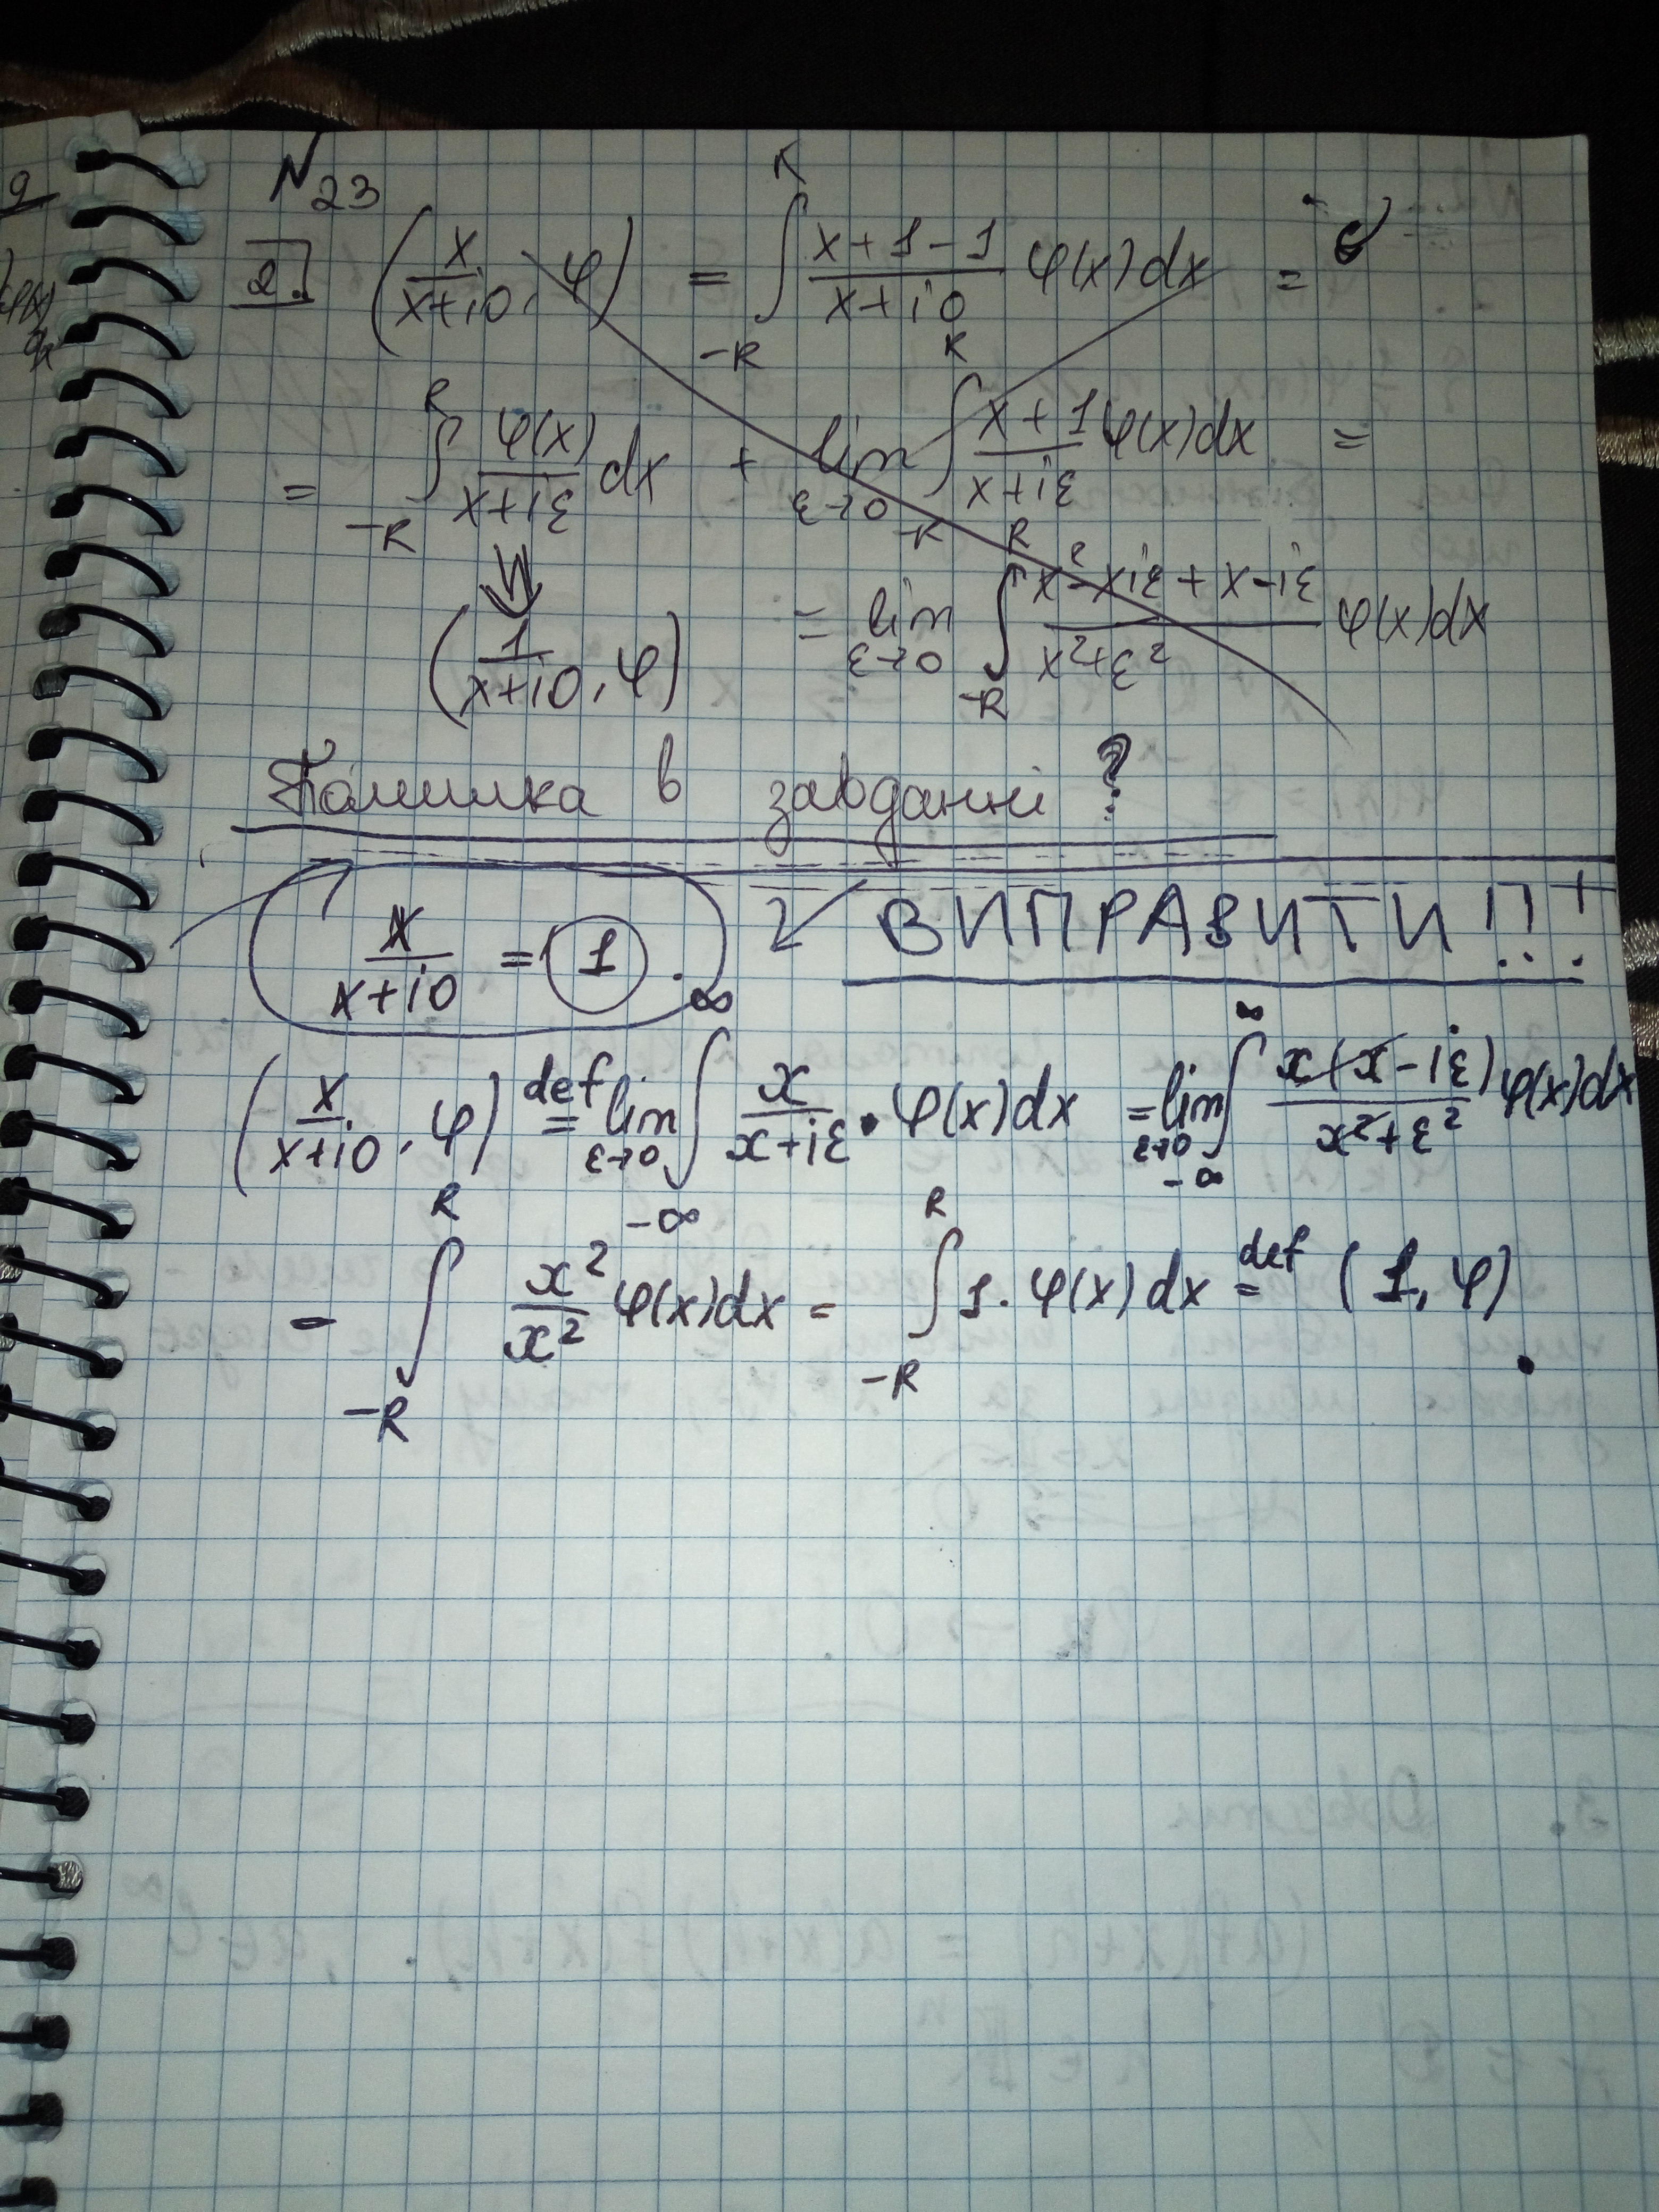 N 23
2. (x/(x+i0), φ) = ∫_{-R}^{R} (x+1-1)/(x+i0) φ(x)dx =
= ∫_{-R}^{R} φ(x)/(x+iε) dx + lim_{ε→0} ∫_{-R}^{R} (x+1)/(x+iε) φ(x)dx =
(1/(x+i0), φ) = lim_{ε→0} ∫_{-R}^{R} (x²-xiε+x-iε)/(x²+ε²) φ(x)dx
Помилка в завданні?
x/(x+i0) = 1. ВИПРАВИТИ!!!
(x/(x+i0), φ) def= lim_{ε→0} ∫_{-∞}^{∞} x/(x+iε) · φ(x)dx = lim_{ε→0} ∫_{-∞}^{∞} x(x-iε)/(x²+ε²) φ(x)dx
= ∫_{-R}^{R} x²/x² φ(x)dx = ∫_{-R}^{R} 1·φ(x)dx def= (1, φ).